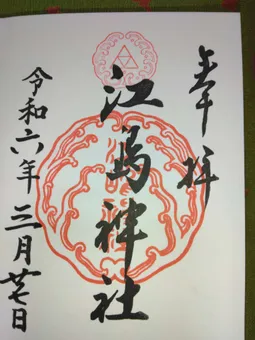 奉拝
江島神社
令和六年三月廿七日